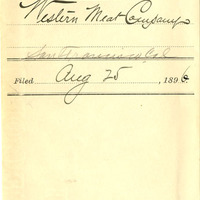 Western Meat Company
San Francisco, Cal
Filed Aug 25, 1896.